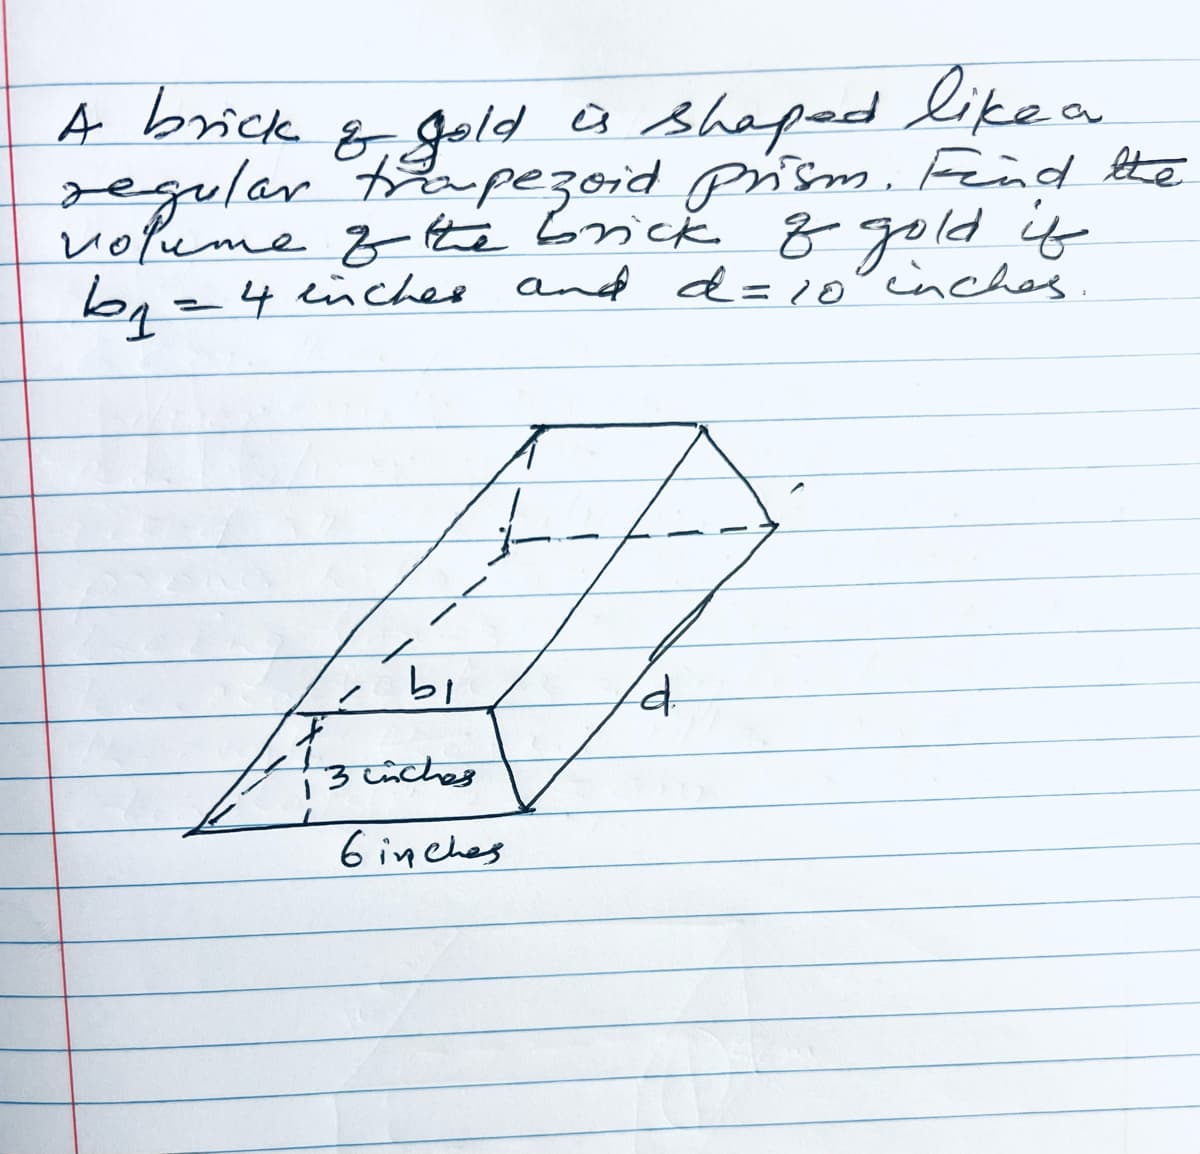 A brick of gold is shaped like a
regular trapezoid prism. Find the
volume of the brick of gold if
b1 = 4 inches and d = 10 inches.
b1
d
3 inches
6 inches